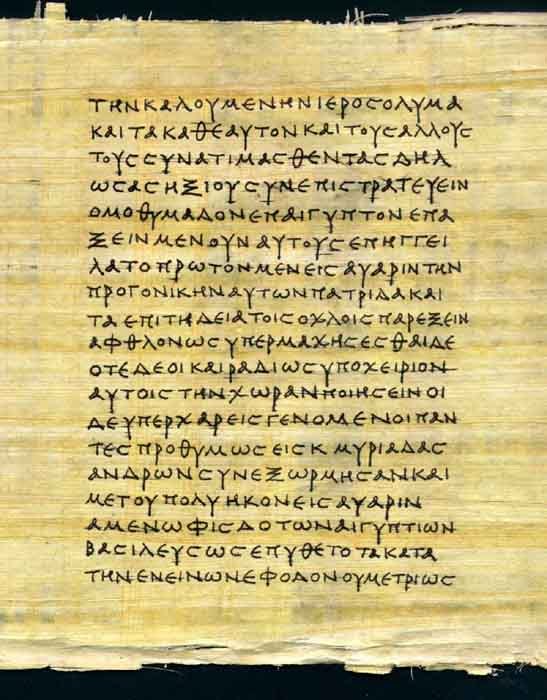 ΤΗΝΚΑΛΟΥΜΕΝΗΝΙΕΡΟϹΟΛΥΜΑ
ΚΑΙΤΑΚΑΘΕΑΥΤΟΝΚΑΙΤΟΥϹΑΛΛΟΥϹ
ΤΟΥϹϹΥΝΑΤΙΜΑϹΘΕΝΤΑϹΔΗΛ
ΩϹΑϹΗΞΙΟΥϹΥΝΕΠΙϹΤΡΑΤΕΥΕΙΝ
ΟΜΟΘΥΜΑΔΟΝΕΠΑΙΓΥΠΤΟΝΕΠΑ
ΞΕΙΝΜΕΝΟΥΝΑΥΤΟΥϹΕΠΗΓΓΕΙ
ΛΑΤΟΠΡΩΤΟΝΜΕΝΕΙϹΑΥΑΡΙΝΤΗΝ
ΠΡΟΓΟΝΙΚΗΝΑΥΤΩΝΠΑΤΡΙΔΑΚΑΙ
ΤΑΕΠΙΤΗΔΕΙΑΤΟΙϹΟΧΛΟΙϹΠΑΡΕΞΕΙΝ
ΑΦΘΟΝΩϹΥΠΕΡΜΑΧΗϹΕϹΘΑΙΔΕ
ΟΤΕΔΕΟΙΚΑΙΡΑΔΙΩϹΥΠΟΧΕΙΡΙΟΝ
ΑΥΤΟΙϹΤΗΝΧΩΡΑΝΠΟΙΗϹΕΙΝΟΙ
ΔΕΥΠΕΡΧΑΡΕΙϹΓΕΝΟΜΕΝΟΙΠΑΝ
ΤΕϹΠΡΟΘΥΜΩϹΕΙϹΚΜΥΡΙΑΔΑϹ
ΑΝΔΡΩΝϹΥΝΕΞΩΡΜΗϹΑΝΚΑΙ
ΜΕΤΟΥΠΟΛΥΗΚΟΝΕΙϹΑΥΑΡΙΝ
ΑΜΕΝΩΦΙϹΔΟΤΩΝΑΙΓΥΠΤΙΩΝ
ΒΑϹΙΛΕΥϹΩϹΕΠΥΘΕΤΟΤΑΚΑΤΑ
ΤΗΝΕΝΕΙΝΩΝΕΦΟΔΟΝΟΥΜΕΤΡΙΩϹ